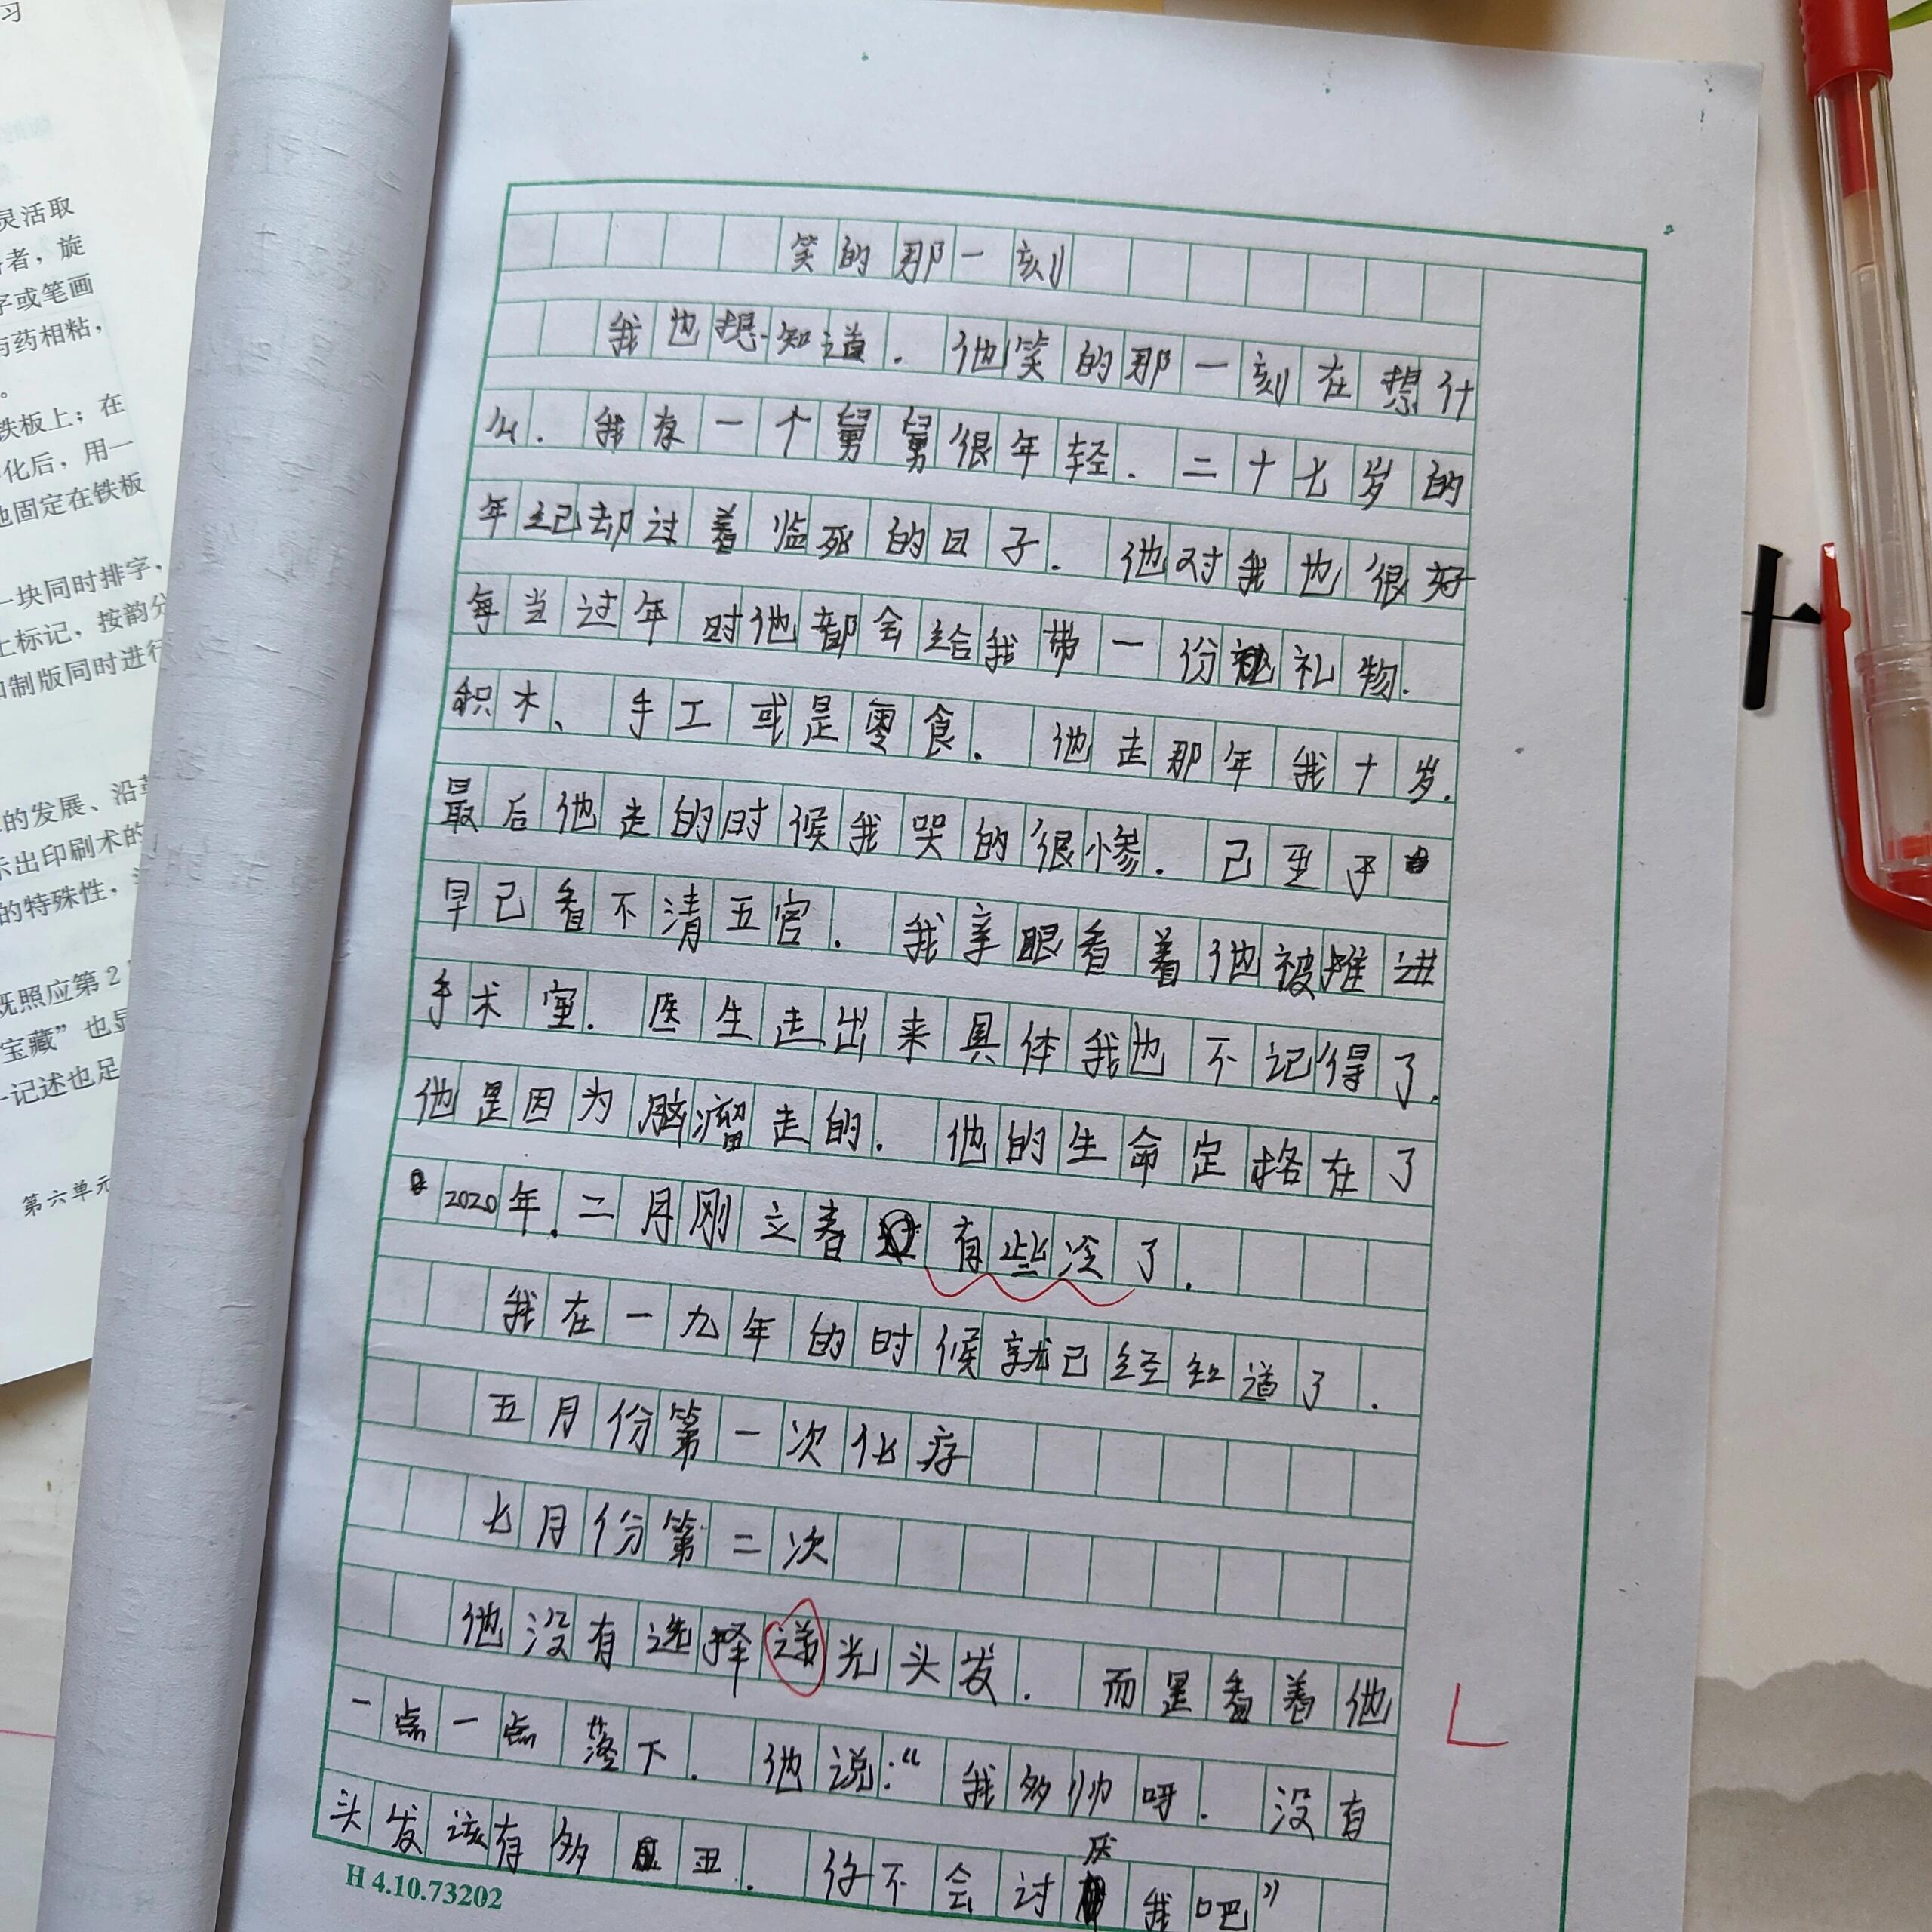 习
灵活取
者，旋
字或笔画
药相粘，
。
铁板上；在
化后，用一
地固定在铁板
一块同时排字，
上标记，按韵分
制版同时进行
的发展、沿革
示出印刷术的
的特殊性，
既照应第2
宝藏”也显
记述也足
第六单元
笑的那一刻
我也想知道．他笑的那一刻在想什
么．我有一个舅舅很年轻．二十七岁的
年纪却过着临死的日子．他对我也很好
每当过年时他都会给我带一份礼物．
积木、手工或是零食．他走那年我十岁．
最后他走的时候我哭的很惨．已至于
早已看不清五官．我亲眼看着他被推进
手术室．医生走出来具体我也不记得了．
他是因为脑瘤走的．他的生命定格在了
2020年．二月刚立春有些冷了．
我在一九年的时候就已经知道了．
五月份第一次化疗
七月份第二次
他没有选择光头发．而是看着他
一点一点落下．他说：“我多帅呀．没有
头发该有多丑．你不会讨厌我吧”
H 4.10.73202